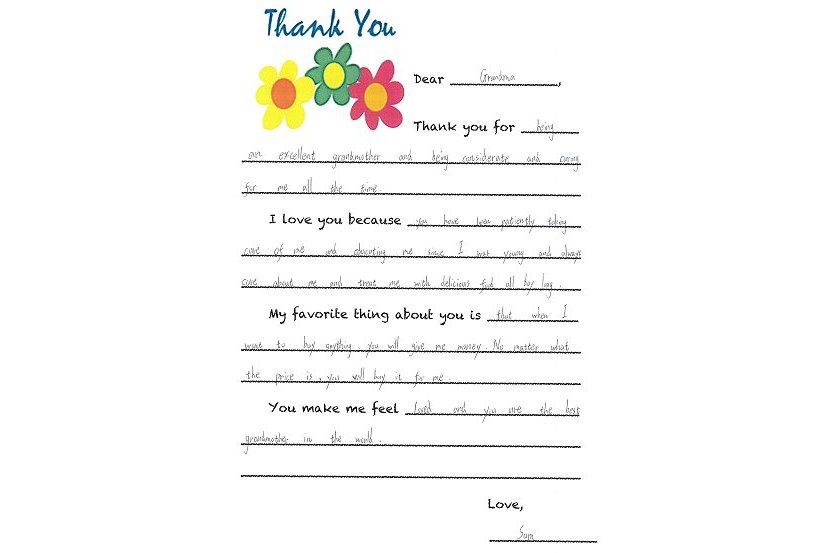 Thank You
Dear Grandma,
Thank you for being
an excellent grandmother and being considerate and caring
for me all the time.
I love you because you have been patiently taking
care of me and educating me since I was young and always
care about me and treat me with delicious food all day long.
My favorite thing about you is that when I
want to buy anything, you will give me money. No matter what
the price is, you will buy it for me.
You make me feel loved and you are the best
grandmother in the world.
Love,
Sara